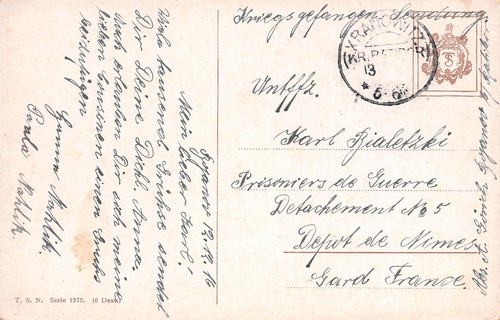 Kriegsgefangen. Sendung.
KRANOWITZ
(KR. RATIBOR)
13
* 5-6N
Untffz.
Karl Bialetzki
Prisoniers de Guerre
Detachement No 5
Depot de Nimes.
Gard France.
Mein lieber Karl!
Viele tausend Grüsse sendet
Dir Deine Dchl. Anna.
Auch erlauben Dir sich meine
lieben Cousinen einen Gruss
beizufügen
Hanna Nahlik.
Paula Nahlik.
T. S. N. Serie 1272. (6 Dess.)